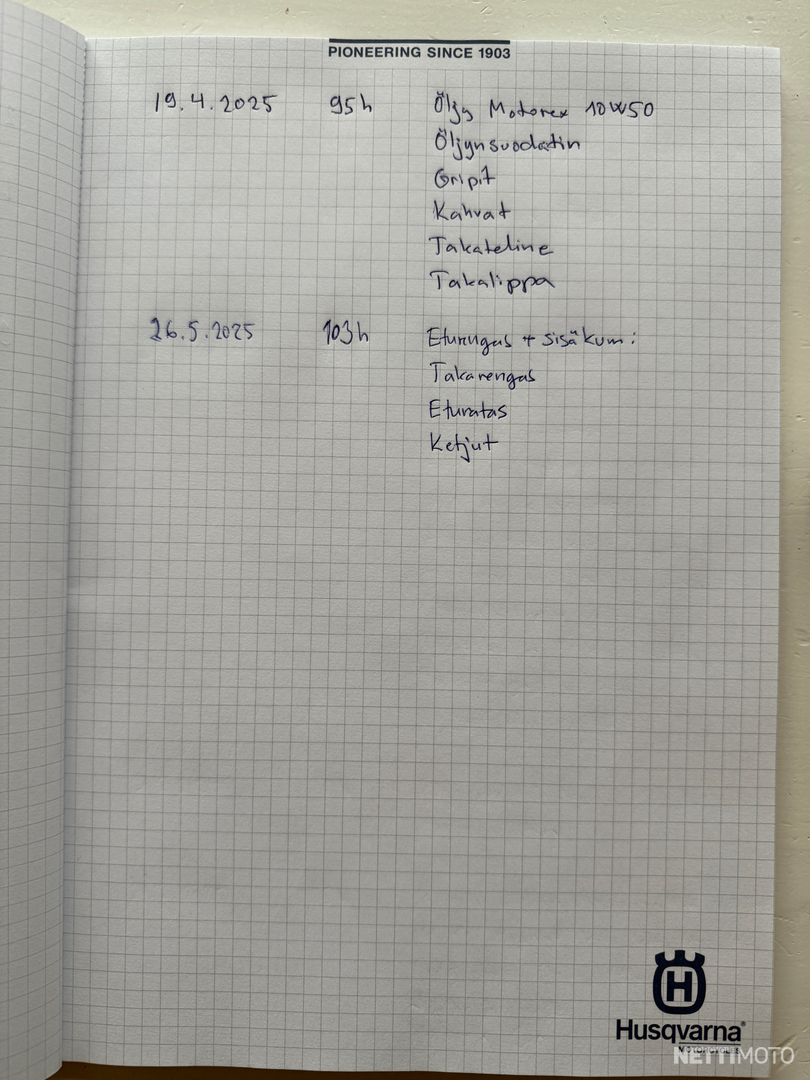 PIONEERING SINCE 1903
19.4.2025 95h Öljy Motorex 10W50
Öljynsuodatin
Gripit
Kahvat
Takateline
Takalippa
26.5.2025 103h Eturengas + sisäkumi
Takarengas
Eturatas
Ketjut
H
Husqvarna®
MOTORCYCLES
NETTIMOTO